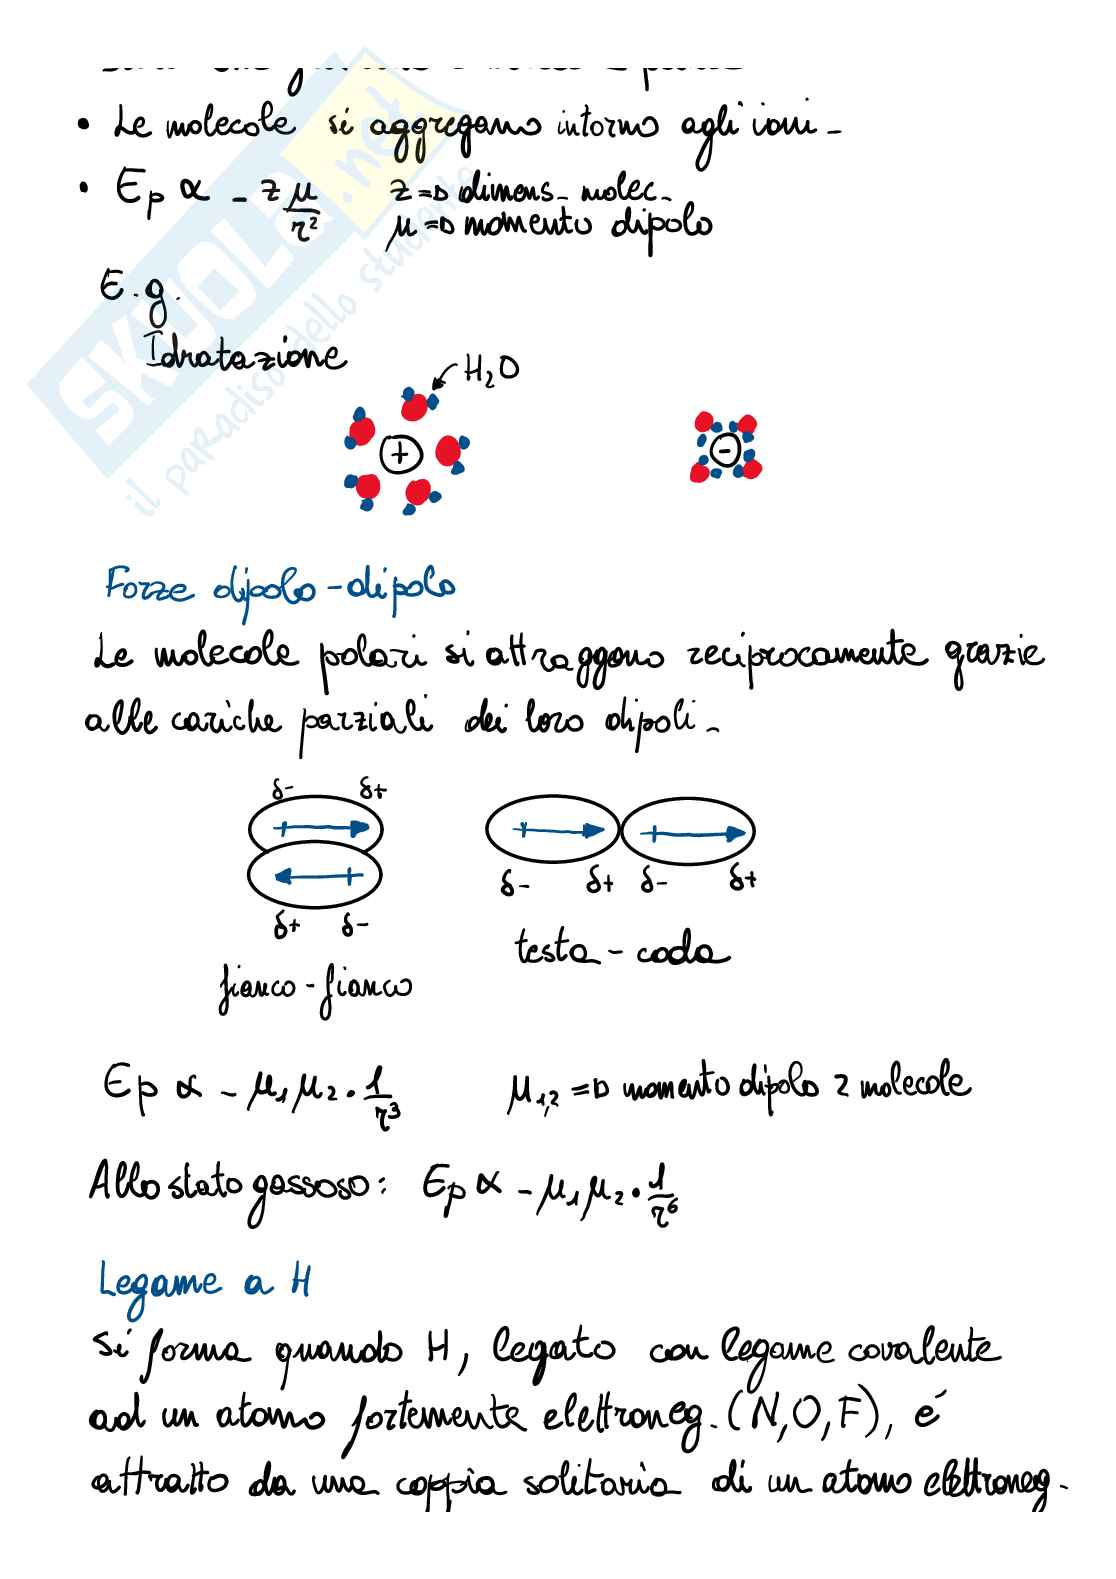 • Le molecole si aggregano intorno agli ioni -
• Ep ∝ - z μ/r² z => dimens- molec.
μ => momento dipolo
E.g.
Idratazione
H₂O
+
-
Forze dipolo-dipolo
Le molecole polari si attraggono reciprocamente grazie
alle cariche parziali dei loro dipoli -
δ- δ+
δ+ δ-
δ- δ+ δ- δ+
fianco-fianco
testa-coda
Ep ∝ - μ₁ μ₂ · 1/r³ μ₁,₂ => momento dipolo 2 molecole
Allo stato gassoso: Ep ∝ - μ₁ μ₂ · 1/r⁶
Legame a H
Si forma quando H, legato con legame covalente
ad un atomo fortemente elettroneg. (N,O,F), é
attratto da una coppia solitaria di un atomo elettroneg-
SKUOLA.net
il paradiso dello studente